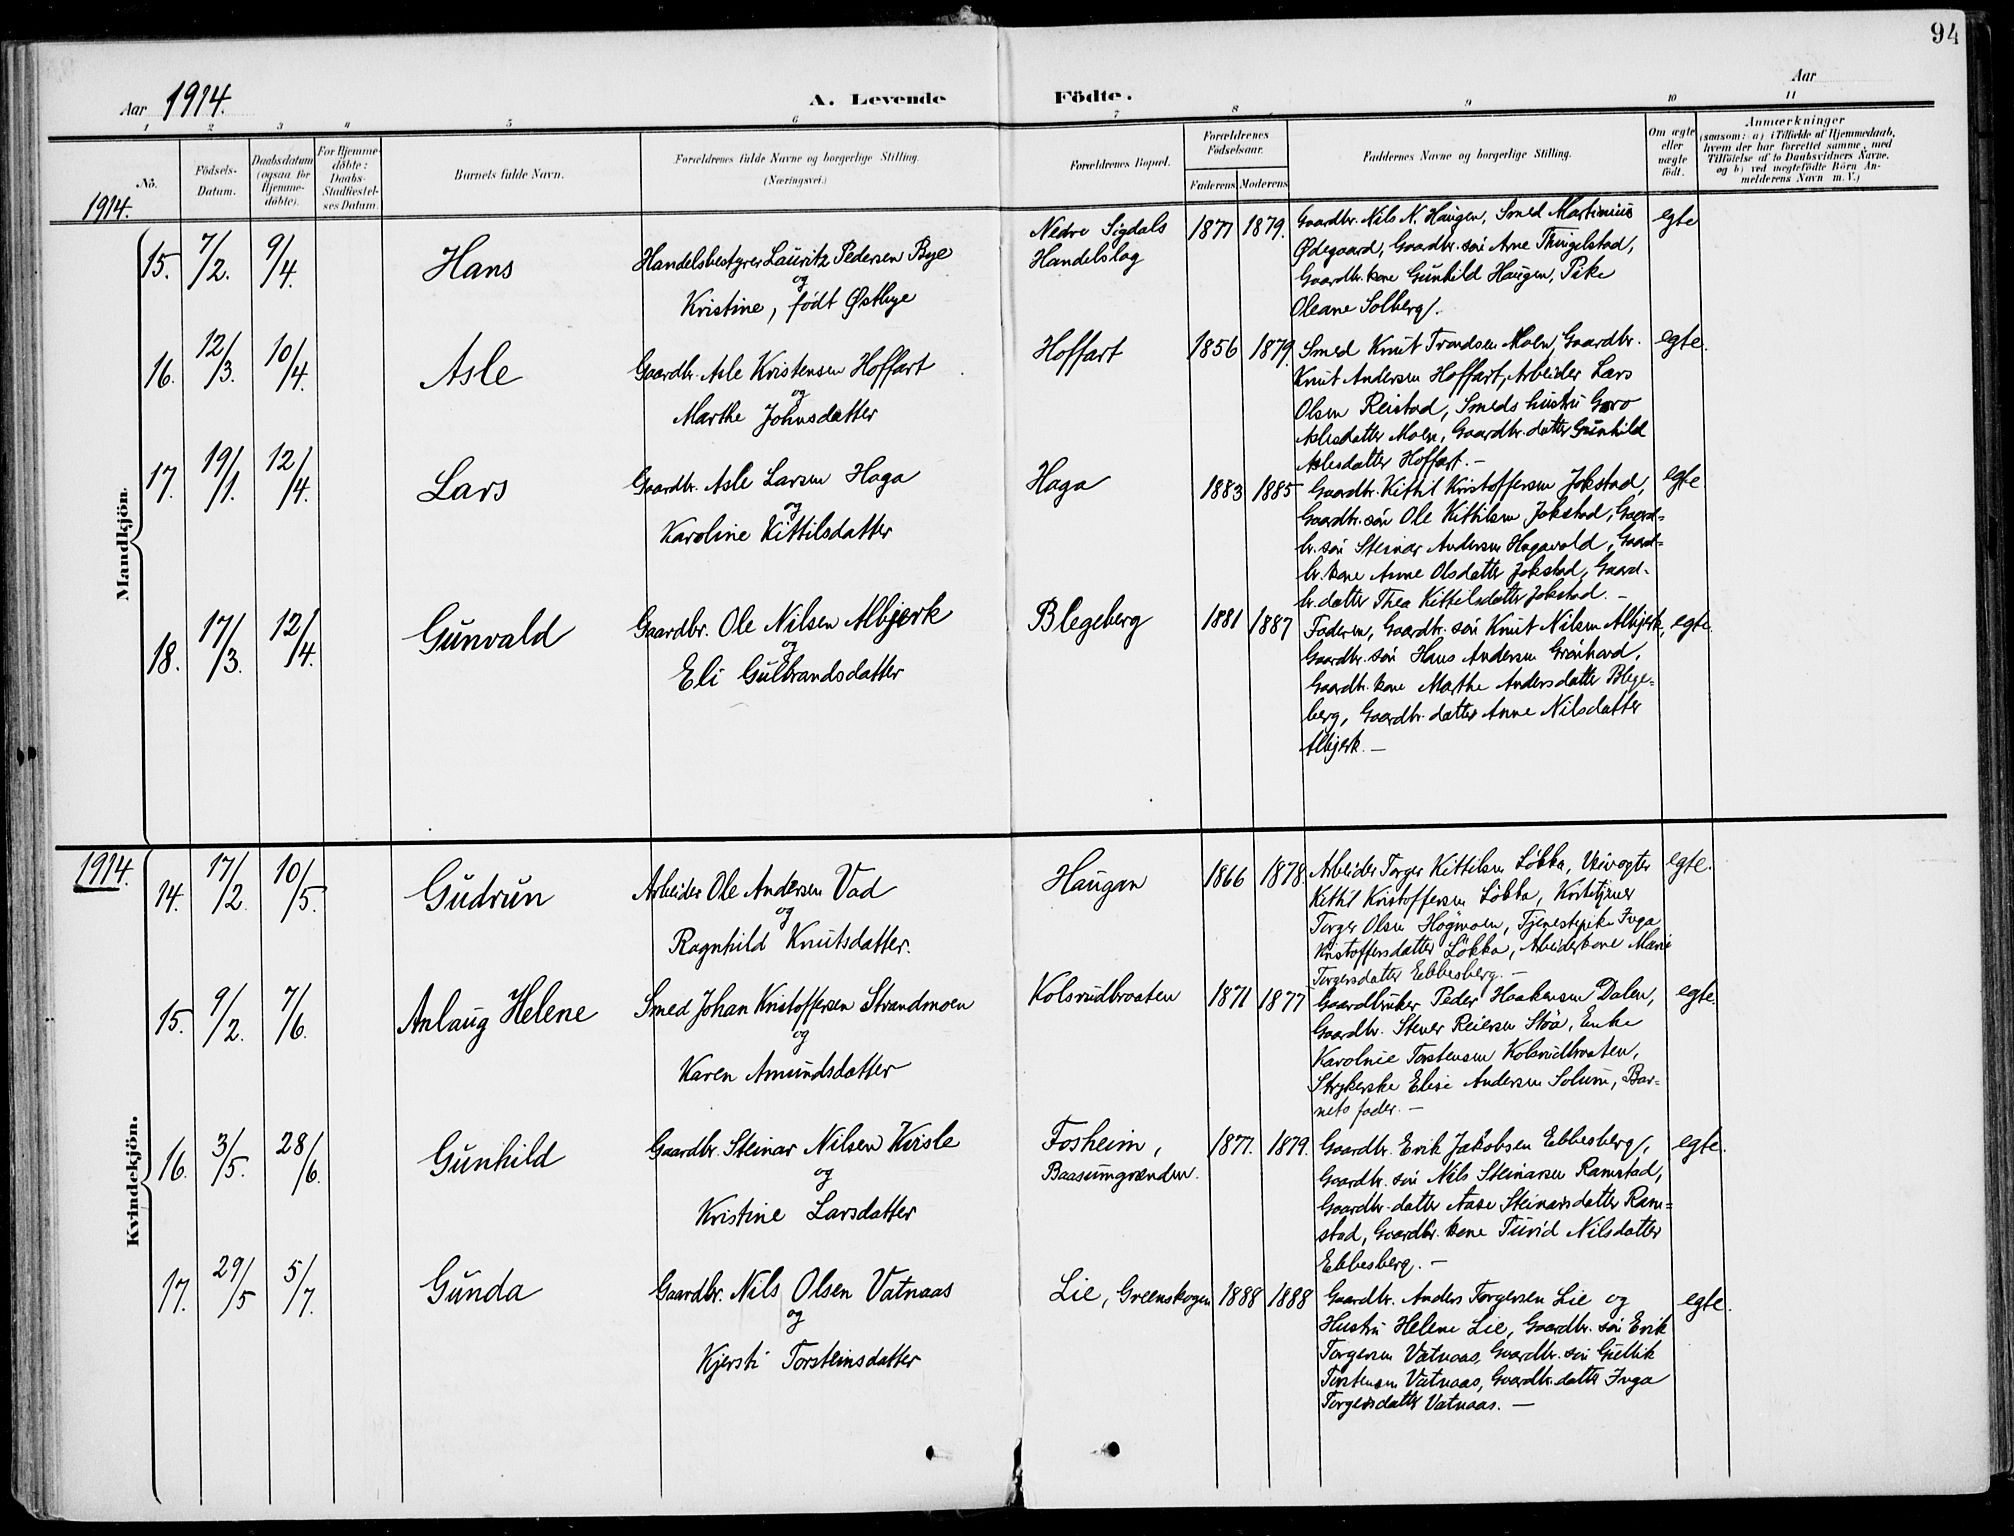 94
Aar 1914.
A. Levende Födte.
Aar
1 2 3 4 5 6 7 8 9 10 11
No.
Födsels-
Datum.
Daabsdatum
(ogsaa for
Hjemme-
döbte).
For Hjemme-
döbte:
Daabs-
Stadfæstel-
ses Datum.
Barnets fulde Navn.
Forældrenes fulde Navne og borgerlige Stilling.
(Næringsvei.)
Forældrenes Bopæl.
Forældrenes
Födselsaar.
Faderens Moderens
Faddernes Navne og borgerlige Stilling.
Om ægte
eller
uægte
födt.
Anmærkninger
(saasom: a) i Tilfælde af Hjemmedaab,
hvem der har forrettet samme, med
Tilföielse af to Daabsvidners Navne,
og b) ved uægtefödte Börn An-
melderens Navn m. V.)
1914.
Mandkjön.
15. 7/2. 9/4. Hans
Handelsbestyrer Lauritz Pedersen Bye
og
Kristine, født Østbye
Nedre Sigdals
Handelslag
1877 1879.
Gaardbr. Nils N. Haugen, Smed Martinius
Ødegaard, Gaardbr. søn Arne Thingelstad,
Gaardbr. kone Gunhild Haugen, Pike
Oleane Solberg.
egte
16. 12/3. 10/4. Asle
Gaardbr. Asle Kristensen Hoffart
og
Marthe Johnsdatter
Hoffart
1856 1879.
Smed Knut Trondsen Moen, Gaardbr.
Knut Andersen Hoffart, Arbeider Lars
Olsen Reistad, Smeds hustru Goro
Aslesdatter Moen, Gaardbr. datter Gunhild
Aslesdatter Hoffart. –
egte.
17. 19/1. 12/4. Lars
Gaardbr. Asle Larsen Haga
og
Karoline Kittilsdatter
Haga
1883 1885
Gaardbr. Kittil Kristoffersen Jokstad,
Gaardbr. søn Ole Kittilsen Jokstad, Gaard-
br. søn Steinar Andersen Hagavold, Gaard-
br. kone Anne Olsdatter Jokstad, Gaard-
br. datter Thea Kittilsdatter Jokstad. –
egte
18. 17/3. 12/4. Gunvald
Gaardbr. Ole Nilsen Albjerk
og
Eli Gulbrandsdatter
Blegeberg
1881 1887
Faderen, Gaardbr. søn Knut Nilsen Albjerk,
Gaardbr. søn Hans Andersen Grønhovd,
Gaardbr. kone Marthe Andersdatter Blege-
berg, Gaardbr. datter Anne Nilsdatter
Albjerk. –
egte.
1914.
Kvindekjön.
14. 17/2. 10/5. Gudrun
Arbeider Ole Andersen Vad
og
Ragnhild Knutsdatter.
Haugan
1866 1878.
Arbeider Torger Kittilsen Løkka, Veivogter
Kittil Kristoffersen Løkka,
Torger Olsen Høgmoen, Tjenestepike Inga
Kristoffersdatter Løkka, Arbeiderkone Marie
Torgersdatter Ebbesberg. –
egte.
15. 9/2. 7/6. Anlaug Helene
Smed Johan Kristoffersen Strandmoen
og
Karen Amundsdatter
Kolsrudbraaten
1871 1877
Gaardbruker Peder Haakensen Dalen,
Gaardbr. Stener Reiersen Støa, Enke
Karoline Torstensen Kolsrudbraaten,
Strykerske Elise Andersen Solum, Bar-
nets fader. –
egte.
16. 3/5. 28/6. Gunhild
Gaardbr. Steinar Nilsen Kirsle
og
Kristine Larsdatter
Fosheim,
Baasumgrænden.
1877. 1879.
Gaardbr. Erik Jakobsen Ebbesberg,
Gaardbr. søn Nils Steinarsen Ramstad,
Gaardbr. datter Aase Steinarsdatter Ram-
stad, Gaardbr. kone Turid Nilsdatter
Ebbesberg. –
egte.
17. 29/5 5/7. Gunda
Gaardbr. Nils Olsen Vatnaas
og
Kjersti Torsteinsdatter
Lie, Greenskogen
1888 1888
Gaardbr. Anders Torgersen Lie og
Hustru Helene Lie, Gaardbr. søn Erik
Torgersen Vatnaas, Gaardbr. søn Gullik
Torstensen Vatnaas, Gaardbr. datter Inga
Torgersdatter Vatnaas. –
egte.